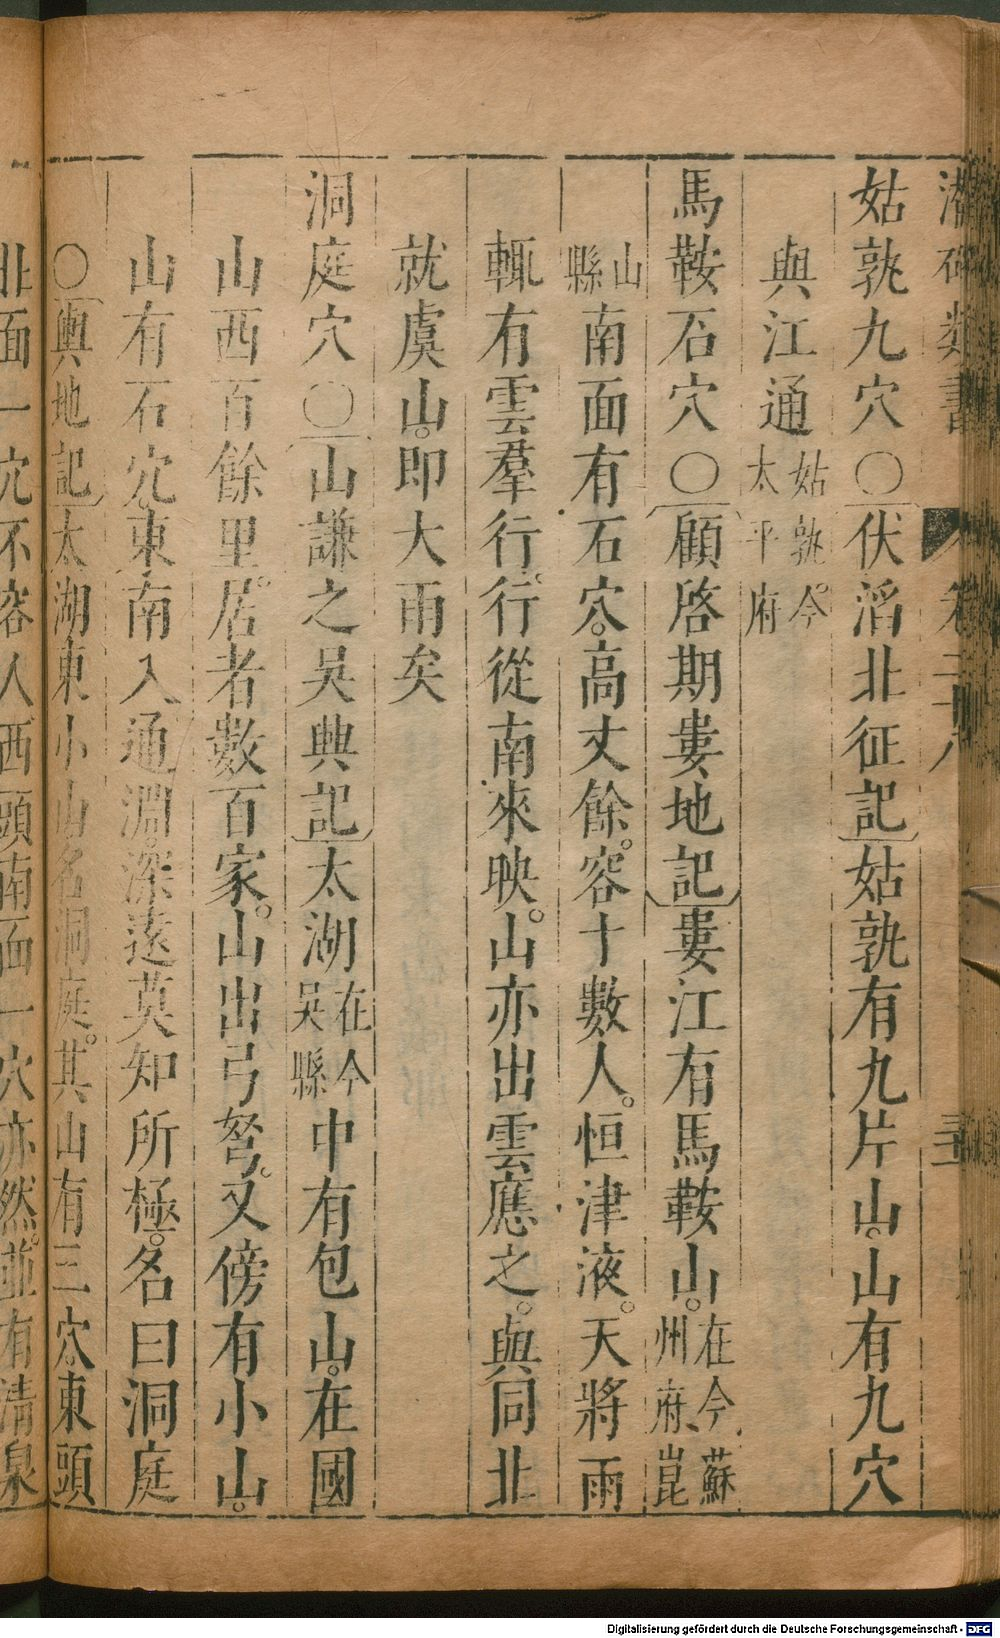 潛確類書 卷二十八
姑孰九穴〇伏滔北征記姑孰有九片山。山有九穴
與江通姑孰。今太平府
馬鞍石穴〇顧啓期婁地記婁江有馬鞍山。在今蘇州府、崑
山縣南面有石穴。高丈餘。容十數人。恒津液。天將雨
輒有雲羣行。行從南來映。山亦出雲應之。與同北
就虞山。即大雨矣
洞庭穴〇山謙之吳興記太湖在今吳縣中有包山。在國
山西百餘里。居者數百家。山出弓弩。又傍有小山。
山有石穴。東南入通淵。深遠莫知所極。名曰洞庭
〇輿地記太湖東小山名洞庭。其山有三穴。東頭
北面一穴不容人西頭南面一穴亦然。並有清泉
Digitalisierung gefördert durch die Deutsche Forschungsgemeinschaft - DFG